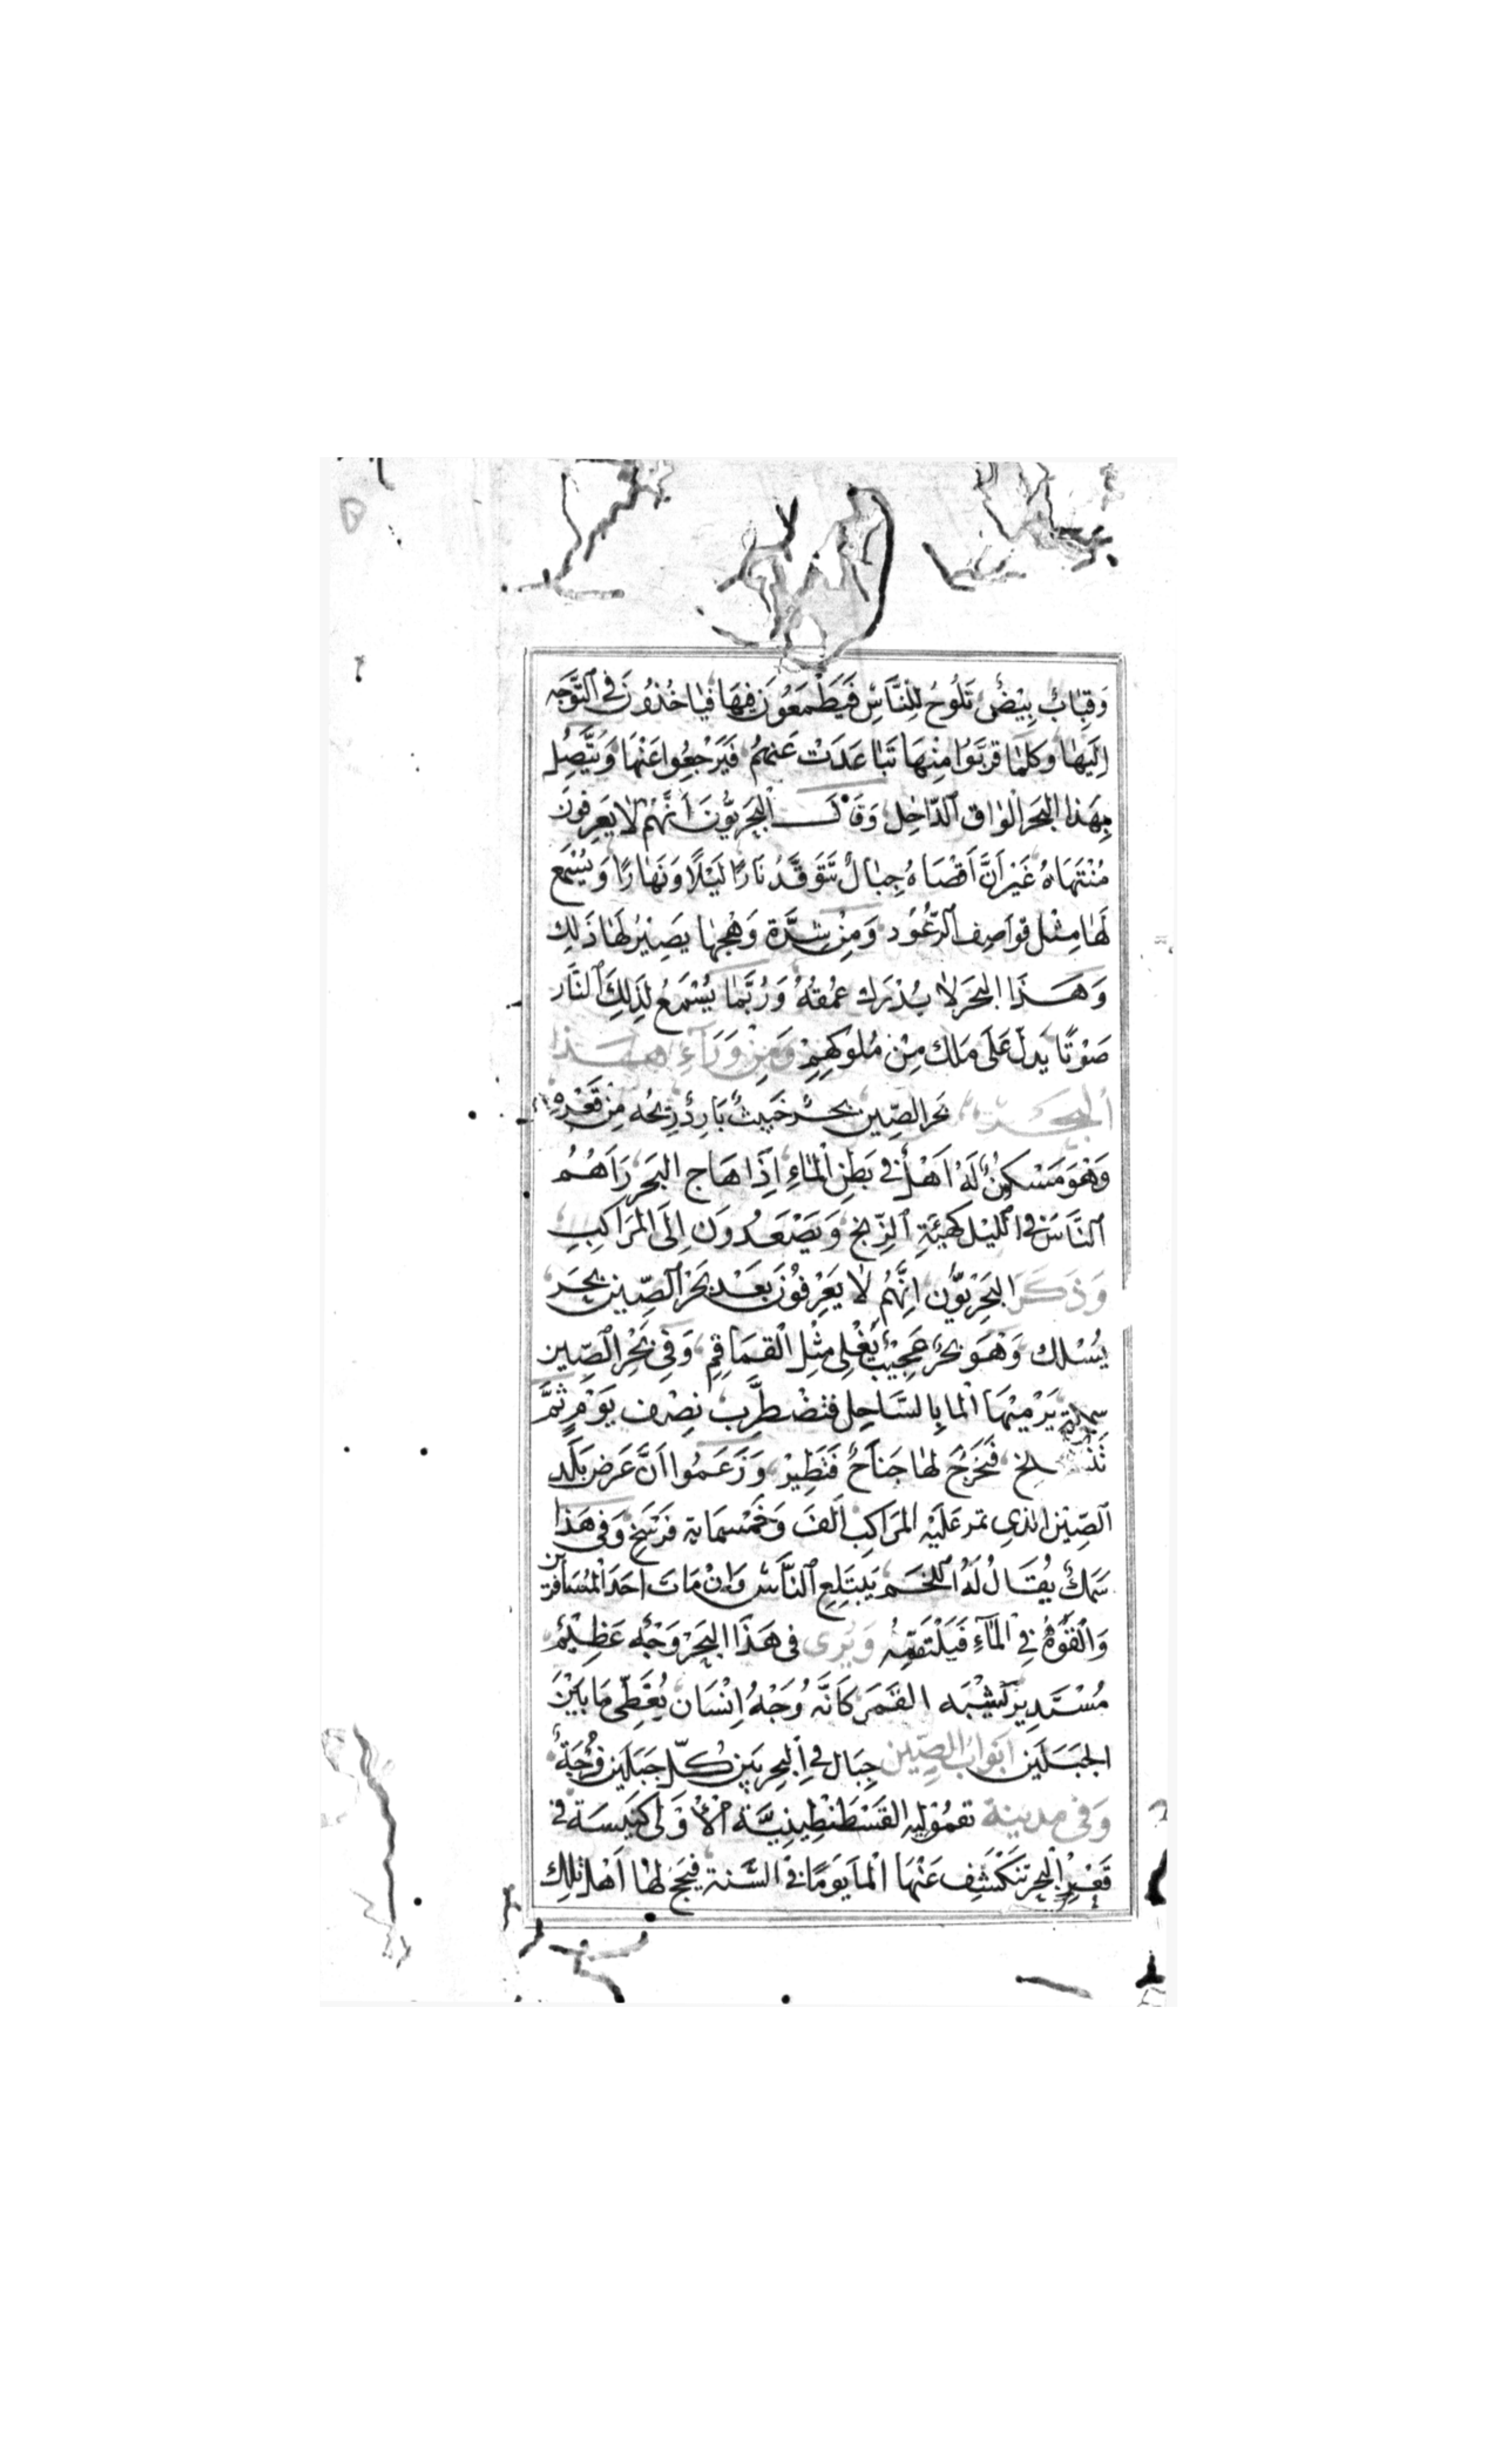 وَقِبَابٌ بِيْضٌ تَلُوحُ لِلنَّاسِ فَيَطْمَعُونَ فِيهَا فيَاخُذُوْنَ في التَّوَجُه
اِلَيهَا وكلمَا قَرَبَوُا مِنْهَا تَبَاعَدَتْ عَنهُم فَيَرْجعُوا عَنْهَا وَيَتَّصِل
بِهَذا البَحَر الوَاق الدّاخِل وَقَالَ البحَريّونَ اَنَّهُم لَا يَعرِفونَ
مُنْتَهَاهُ غَيرَ اَنَّ اَقصَاهُ جِبَالٌ تَتَوَقّدُ نَارًا لَيْلًا وَنَهَارًا وَيُسْمَع
لَهَا مِثْل قوَاصِف الرّعُود وَمِنْ شِدَّة وَهْجهَا يَصِيْرُ لَهَا ذَلِك
وَهَذَا البحَر لا يُدْرَك عُمْقُهُ وَرُبَّمَا يُسْمَعُ لِذَلِكَ النَّار
صَوْتًا يَدل عَلَى مَلك مِنْ مُلوكهِمْ وَمِنْ وَرَآءِ هَذا
البحَر بَحر الصّين بحرٌ خَبيثٌ بَارِدٌ رِيحُه مِنْ قَعْرِهِ
وَهْوَ مَسْكونٌ لَهُ اَهْلٌ في بَطنِ الْمَاءِ اِذَا هَاج البَحَر رَاَهُم
النَّاسَ في الَّليْل كهَيْئَةِ الزِّنج وَيَصْعَدُونَ اِلَى المرَاكِبِ
وَذكَرَ البَحَرِيّوُن اِنَّهُم لَا يَعْرِفُونَ بَعْد بَحْر الصِّين بحَر
يُسْلك وَهْوَ بحَرٌ عَجِيْبٌ يَغْلِى مثْل القمَاقِمِ وَفي بَحْر الصِّين
سمكة يَرْميْهَا الْما بِالسَّاحِل فتضْطرِّبُ نِصْف يَوْمٍ ثمَّ
فتَخرُجَ لهَا جَنَاحٌ فَتَطِيْر وَزَعَمُوا اَنَّ عَرَض بَلَد
الصِّيْن الذي تمر عَلَيْه المرَاكِب الفَ وَخَمْسمَاية فَرْسَخ وَفي هَذا
سَمَكٌ يُقَالُ لَهُ اللخَم يَبتَلِع النَّاسَ وَانْ مَاتَ اَحَد المُسَافرين
وَالقَوْهُ في الْمَآءِ فَيَلْتَقمُه وَيُرى في هَذَا البَحْر وَجْه عَظِيْمٌ
مُسْتَدِيرٌ يُشْبَه القَمَر كَانَّهُ وَجْهُ اِنْسَان يُغَطّى مَا بَيْنَ
الجبَلَين اَبْوابُ الصِّين جِبَال في البحِر بَين كلّ جَبَلَين فُرْجَةٌ
وَفي مدينة القَسْطنْطِينِيَّة الْاُوْلى كنَيسَة في
قَعْرِ البحِر تنكَشِف عَنْهَا الْما يَوْمًا في السَّنة فيَحج لهَا اَهْل تِلك